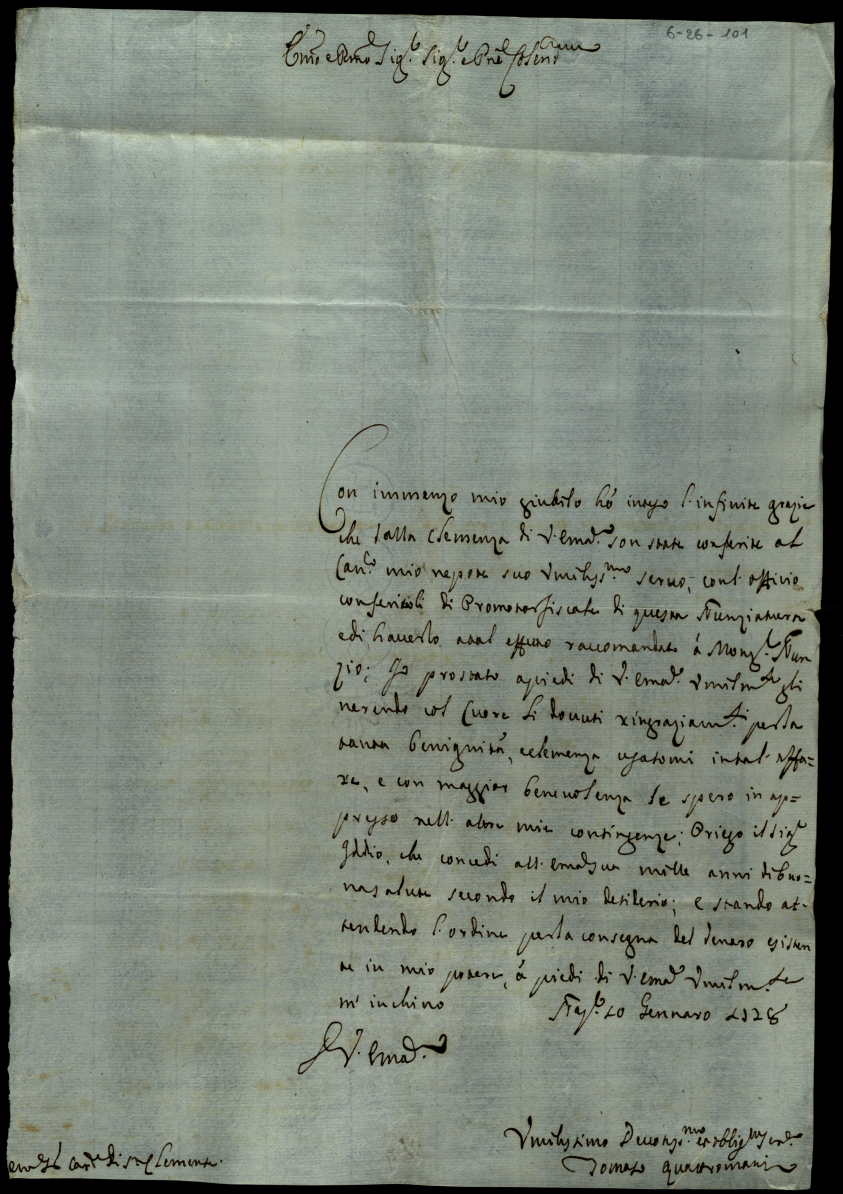 6-26-101
Em̃o e Rm̃o Sig.r Sig.r e Pne Col.mo
Con immenzo mio giubilo hò inteso l'infinite grazie
che dalla Clemenza di V. Emãd.a son state conferite al
Can.co mio nepote suo Vmiliss.mo servo, conl'officio
conferitoli di Promotorfiscale di questa Nunziatura
edi haverlo atal effetto raccomandato á Mons.r Nun
zio; Io prostato apiedi di V. Emãd.a Vmilm.te gli
nerendo col Cuore li dovuti ringraziam.ti perla
tanta benignità, eclemenza usatomi intal' affa=
re, e con maggior benevolenza le spero in ap=
presso nell' altre mie contingenze; Priego il Sig.r
Iddio, che concedi all' Emãd.sua mille anni dibuo=
nasalute secondo il mio desiderio; e stando at-
tendendo l'ordine perla consegna del denaro esisten
te in mio potere, á piedi di V. Emãd.a Vmilm.te
m'inchino
Nap. 20 Gennaro 1728
D V. Emãd.a
Vmilissimo Devotiss.mo et oblig.mo serv.e
Donato Quattromani
Card.le di S. Clemente.